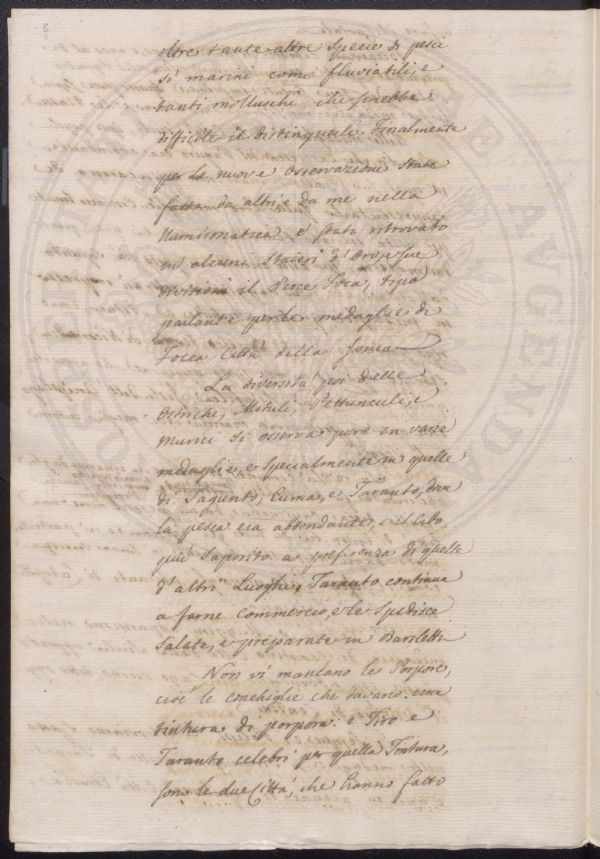 8
oltre tante altre specie di pesci
sì marini come fluviatili, e
tanti molluschi che sarebbe
difficile il distinguerli. Finalmente
per le nuove osservazioni state
fatte da altri e da me nella
Numismatica, è stato ritrovato
in alcuni Stateri d'Oro, e sue
divisioni il Pesce Foca, tipo
parlante per le medaglie di
Focea Città della Jonia
La diversità poi delle
Ostriche, Mituli, Pettuncoli, e
Murici si osserva pure in varie
medaglie, e specialmente in quelle
di Sagunto, Cuma, e Taranto, dove
la pesca era abbondante, e il cibo
più saporito a preferenza di quella
d'altri Luoghi, Taranto continua
a farne commercio, e le spedisce
salate, e preparate in Bariletti
Non vi mancano le Porpore,
cioè le conchiglie che davano una
tintura di porpora e Tiro e
Taranto celebri per quella Tintura,
sono le due Città, che hanno fatto